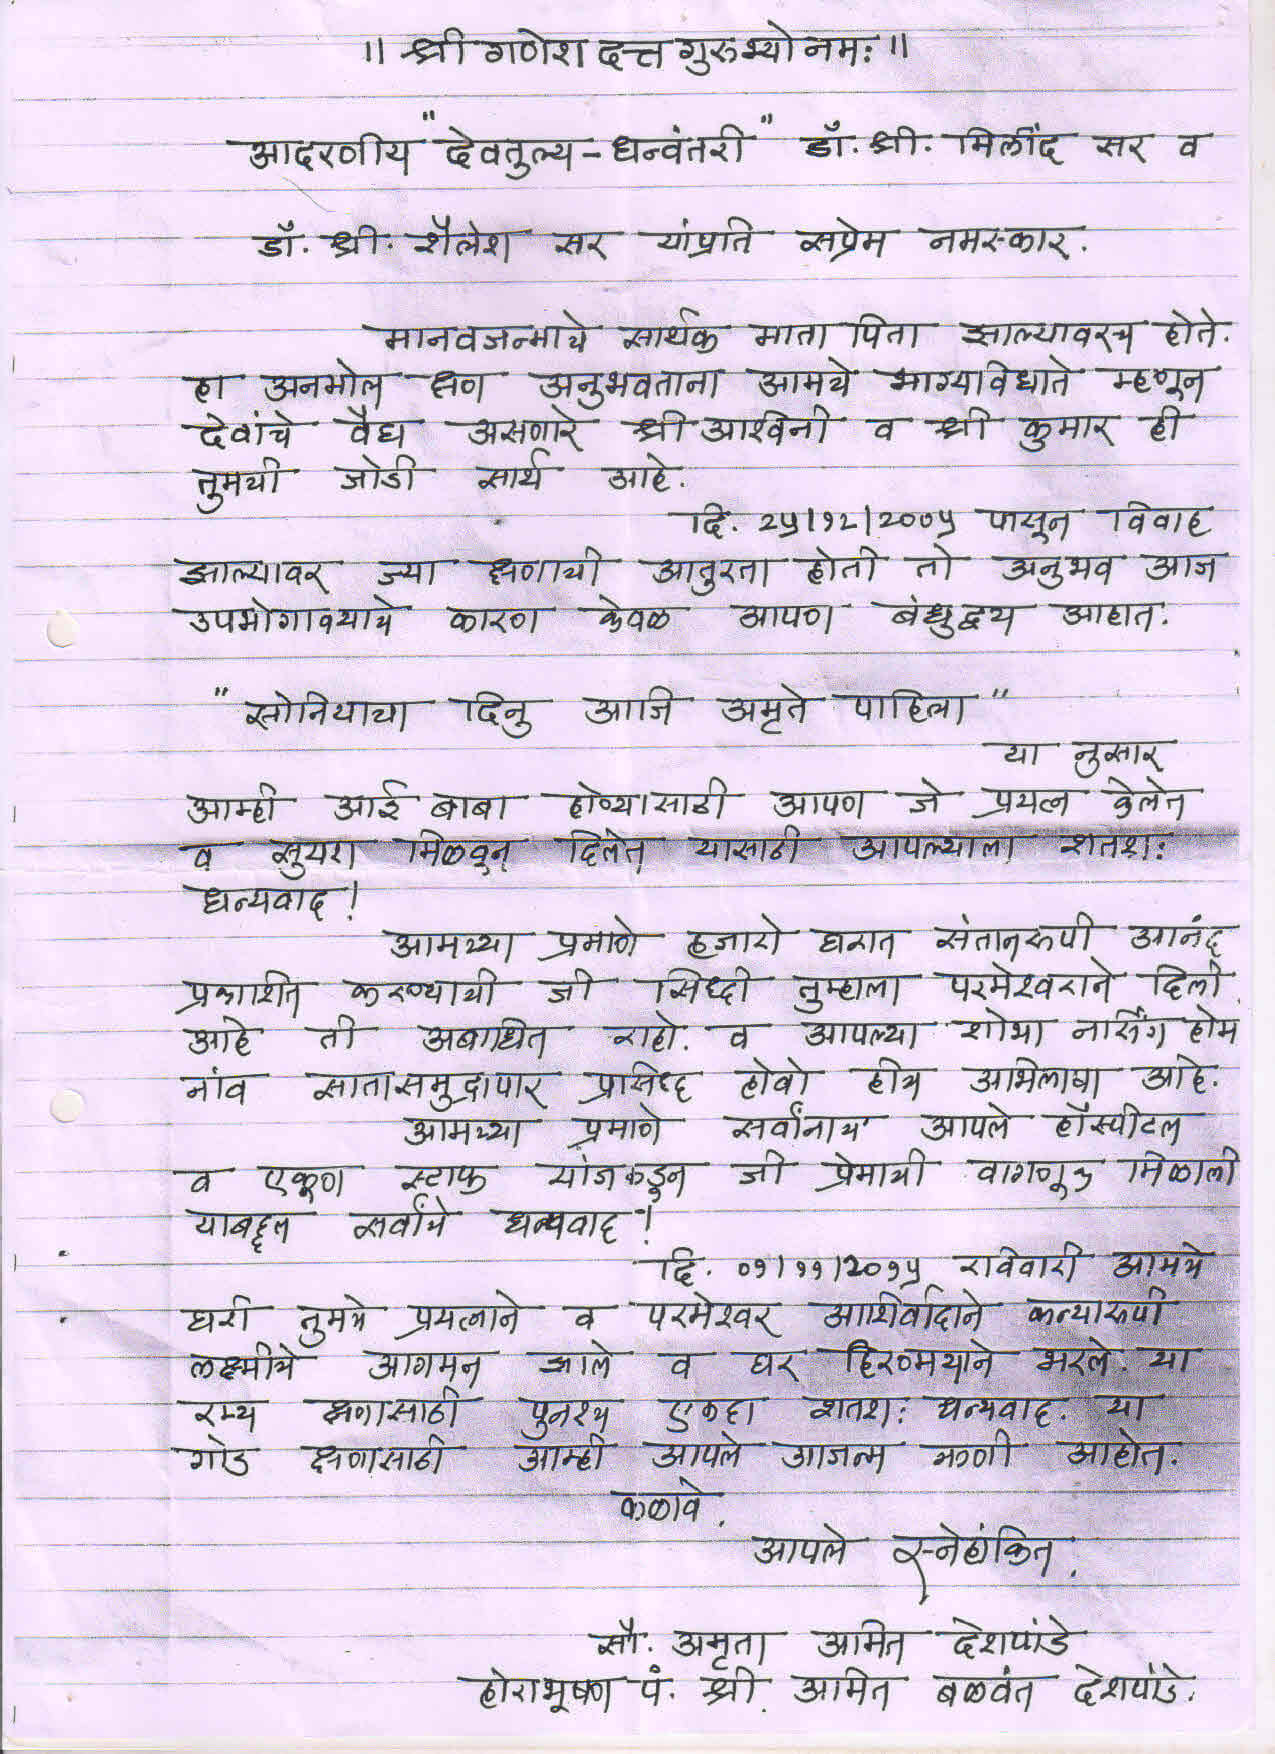 ॥ श्री गणेश दत्त गुरुभ्यो नमः ॥
आदरणीय "देवतुल्य - धन्वंतरी" डॉ. श्री. मिलींद सर व
डॉ. श्री. शैलेश सर यांप्रति सप्रेम नमस्कार.
मानवजन्माचे सार्थक माता पिता झाल्यावरच होते.
हा अनमोल क्षण अनुभवताना आमचे भाग्यविधाते म्हणून
देवांचे वैद्य असणारे श्री आश्विनी व श्री कुमार ही
तुमची जोडी सार्थ आहे.
दि. २५/१२/२००५ पासून विवाह
झाल्यावर ज्या क्षणाची आतुरता होती तो अनुभव आज
उपभोगावयाचे कारण केवळ आपण बंधुद्वय आहात.
"सोनियाचा दिनु आजि अमृते पाहिला"
या नुसार
आम्ही आई बाबा होण्यासाठी आपण जे प्रयत्न केलेत
व सुयश मिळवून दिलेत यासाठी आपल्याला शतशः
धन्यवाद !
आमच्या प्रमाणे हजारो घरात संतानरुपी आनंद
प्रकाशित करण्याची जी सिध्दी तुम्हाला परमेश्वराने दिली
आहे ती अबाधित राहो. व आपल्या शोभा नर्सिंग होम
नांव सातासमुद्रापार प्रसिध्द होवो हीच अभिलाषा आहे.
आमच्या प्रमाणे सर्वांनाच आपले हॉस्पीटल
व एकूण स्टाफ यांजकडून जी प्रेमाची वागणूक मिळाली
याबद्दल सर्वांचे धन्यवाद !
दि. ०१/११/२०१५ रविवारी आमचे
घरी तुमचे प्रयत्नाने व परमेश्वर आशिर्वादाने कन्यारुपी
लक्ष्मीचे आगमन झाले व घर हिरण्मयाने भरले. या
रम्य क्षणासाठी पुनश्च एकदा शतशः धन्यवाद. या
गोड क्षणासाठी आम्ही आपले आजन्म ऋणी आहोत.
कळावे.
आपले स्नेहांकित.
सौ. अमृता अमित देशपांडे
होराभूषण पं. श्री. अमित बळवंत देशपांडे.